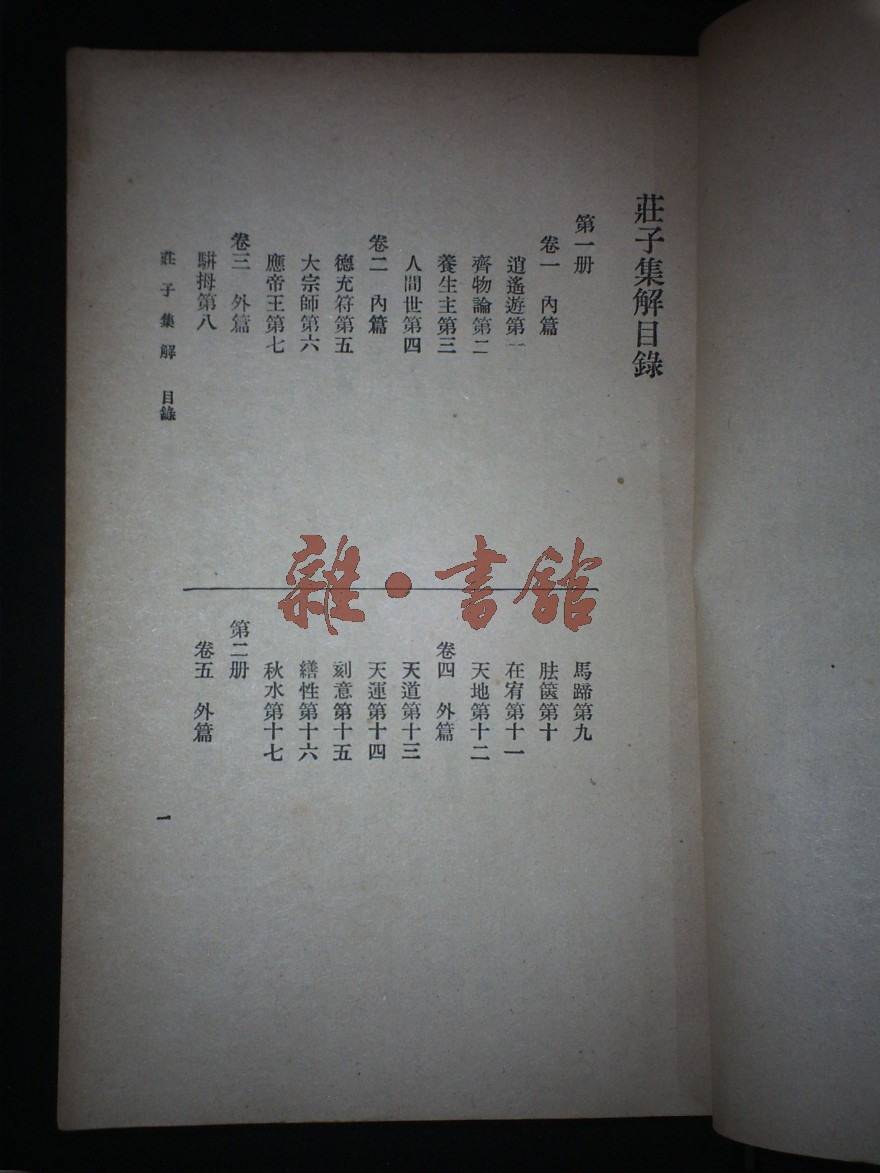 莊子集解目錄
第一册
卷一　內篇
逍遙遊第一
齊物論第二
養生主第三
人間世第四
卷二　內篇
德充符第五
大宗師第六
應帝王第七
卷三　外篇
駢拇第八
馬蹄第九
胠篋第十
在宥第十一
天地第十二
卷四　外篇
天道第十三
天運第十四
刻意第十五
繕性第十六
秋水第十七
第二册
卷五　外篇
莊子集解　目錄
一
雜・書館